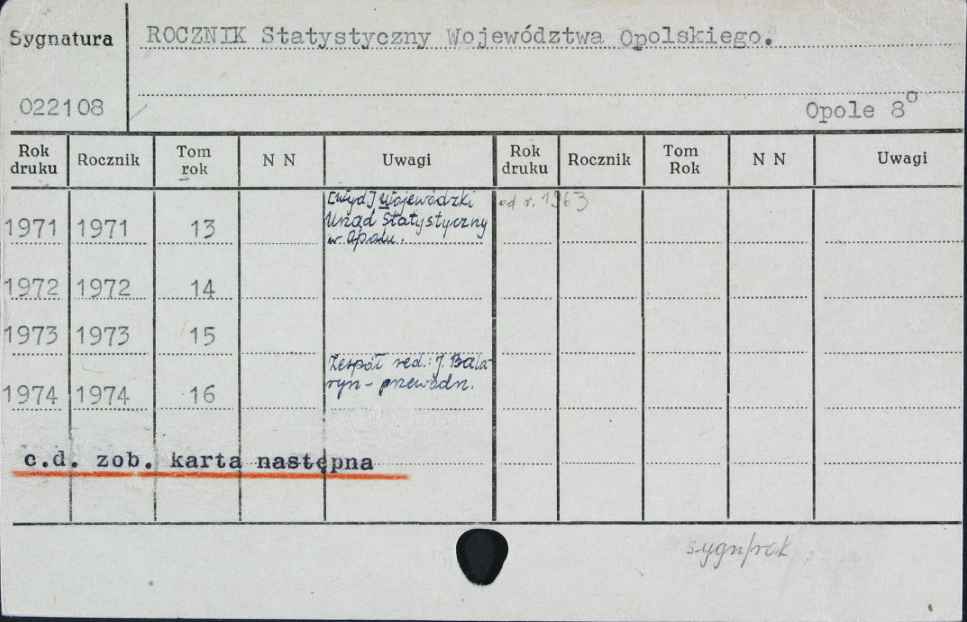 Sygnatura ROCZNIK Statystyczny Województwa Opolskiego.
022108 Opole 8°
Rok druku Rocznik Tom rok N N Uwagi Rok druku Rocznik Tom Rok N N Uwagi
[Wyd] Wojewódzki od r. 1963
1971 1971 13 Urząd Statystyczny
w Opolu.
1972 1972 14
1973 1973 15
Zespół red.: J. Bala-
1974 1974 16 ryn - przewodn.
c.d. zob. karta następna
sygn/rok